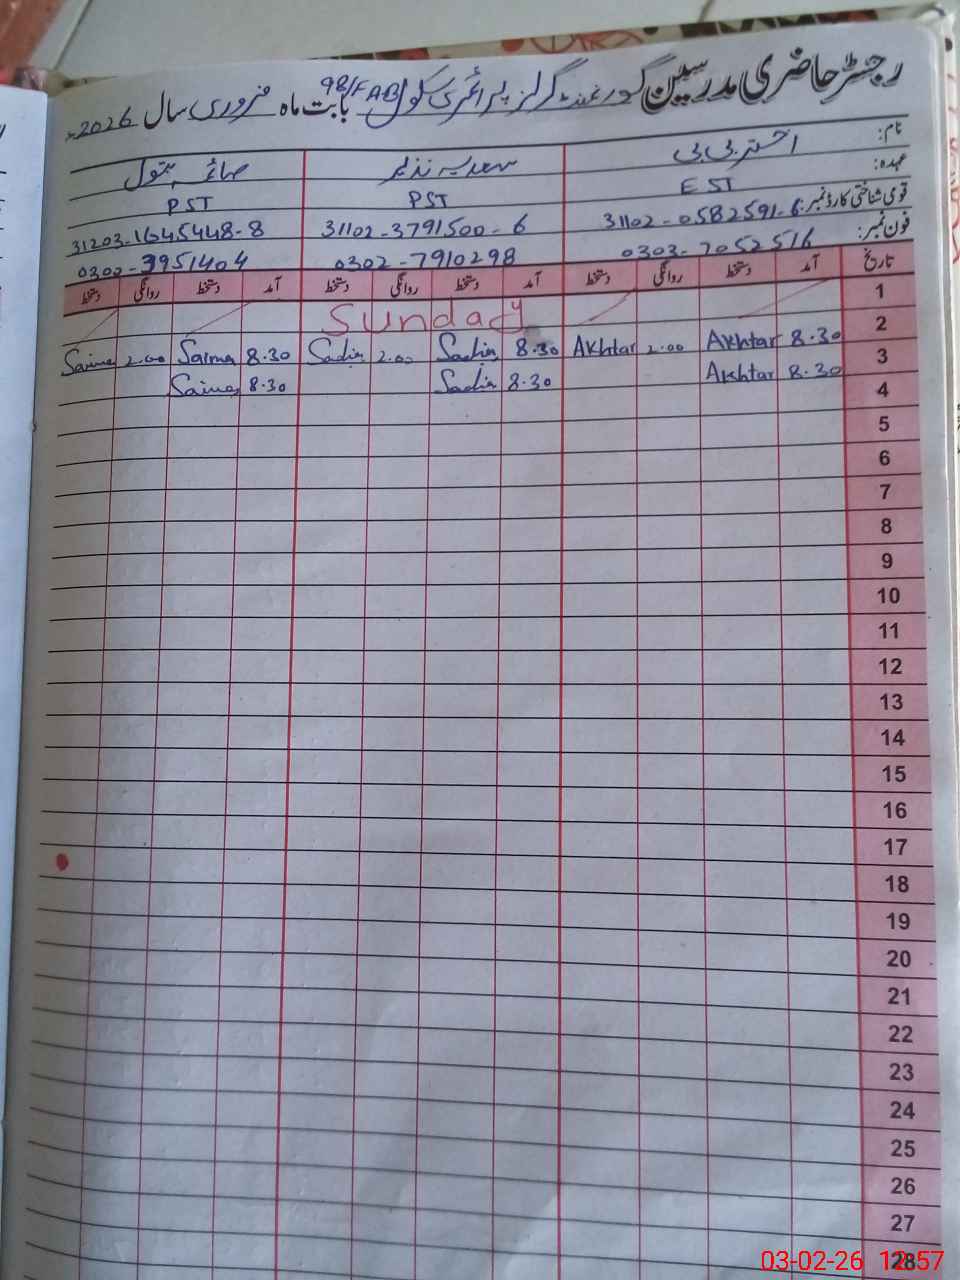 رجسٹر حاضری مدرسین گورنمنٹ گرلز پرائمری سکول 98/FAB بابت ماہ فروری سال 2026ء
نام: اختر بی بی سعدیہ نذیر صائمہ بتول
عہدہ: EST PST PST
قومی شناختی کارڈ نمبر: 31102-0582591-6 31102-3791500-6 31203-1645448-8
فون نمبر: 0303-7052516 0302-7910298 0302-3951404
تاریخ آمد دستخط روانگی دستخط آمد دستخط روانگی دستخط آمد دستخط روانگی دستخط
1 Sunday
2 8.30 Akhtar 2.00 Akhtar 8.30 Sadia 2.00 Sadia 8.30 Saima 2.00 Saima
3 8.30 Akhtar 8.30 Sadia 8.30 Saima
4
5
6
7
8
9
10
11
12
13
14
15
16
17
18
19
20
21
22
23
24
25
26
27
28
03-02-26 12:57